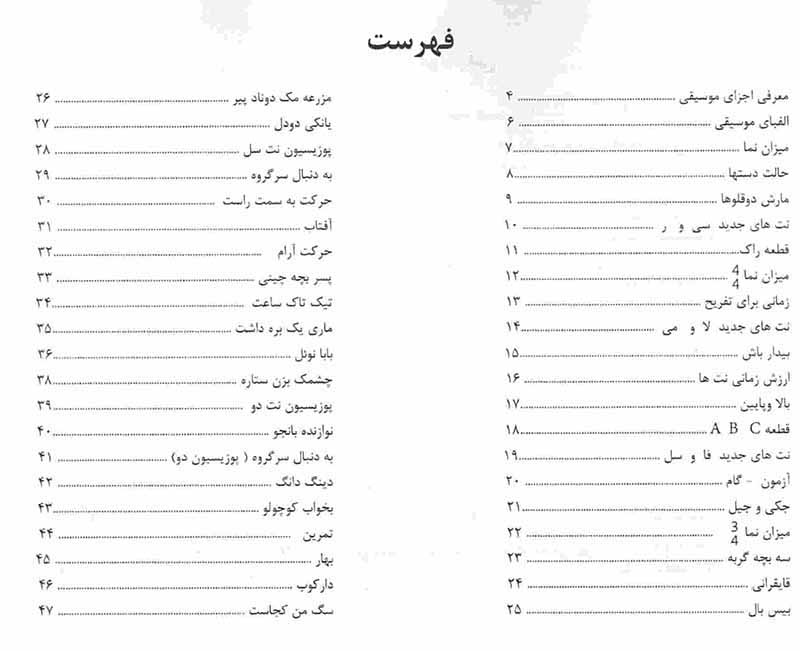 فهرست
معرفی اجزای موسیقی ........ ۴
الفبای موسیقی ........ ۶
میزان نما ........ ۷
حالت دستها ........ ۸
مارش دوقلوها ........ ۹
نت های جدید سی و ر ........ ۱۰
قطعه راک ........ ۱۱
میزان نما 4/4 ........ ۱۲
زمانی برای تفریح ........ ۱۳
نت های جدید لا و می ........ ۱۴
بیدار باش ........ ۱۵
ارزش زمانی نت ها ........ ۱۶
بالا وپایین ........ ۱۷
قطعه A B C ........ ۱۸
نت های جدید فا و سل ........ ۱۹
آزمون - گام ........ ۲۰
جکی و جیل ........ ۲۱
میزان نما 3/4 ........ ۲۲
سه بچه گربه ........ ۲۳
قایقرانی ........ ۲۴
بیس بال ........ ۲۵
مزرعه مک دوناد پیر ........ ۲۶
یانکی دودل ........ ۲۷
پوزیسیون نت سل ........ ۲۸
به دنبال سرگروه ........ ۲۹
حرکت به سمت راست ........ ۳۰
آفتاب ........ ۳۱
حرکت آرام ........ ۳۲
پسر بچه چینی ........ ۳۳
تیک تاک ساعت ........ ۳۴
ماری یک بره داشت ........ ۳۵
بابا نوئل ........ ۳۶
چشمک بزن ستاره ........ ۳۸
پوزیسیون نت دو ........ ۳۹
نوازنده بانجو ........ ۴۰
به دنبال سرگروه ( پوزیسیون دو) ........ ۴۱
دینگ دانگ ........ ۴۲
بخواب کوچولو ........ ۴۳
تمرین ........ ۴۴
بهار ........ ۴۵
دارکوب ........ ۴۶
سگ من کجاست ........ ۴۷